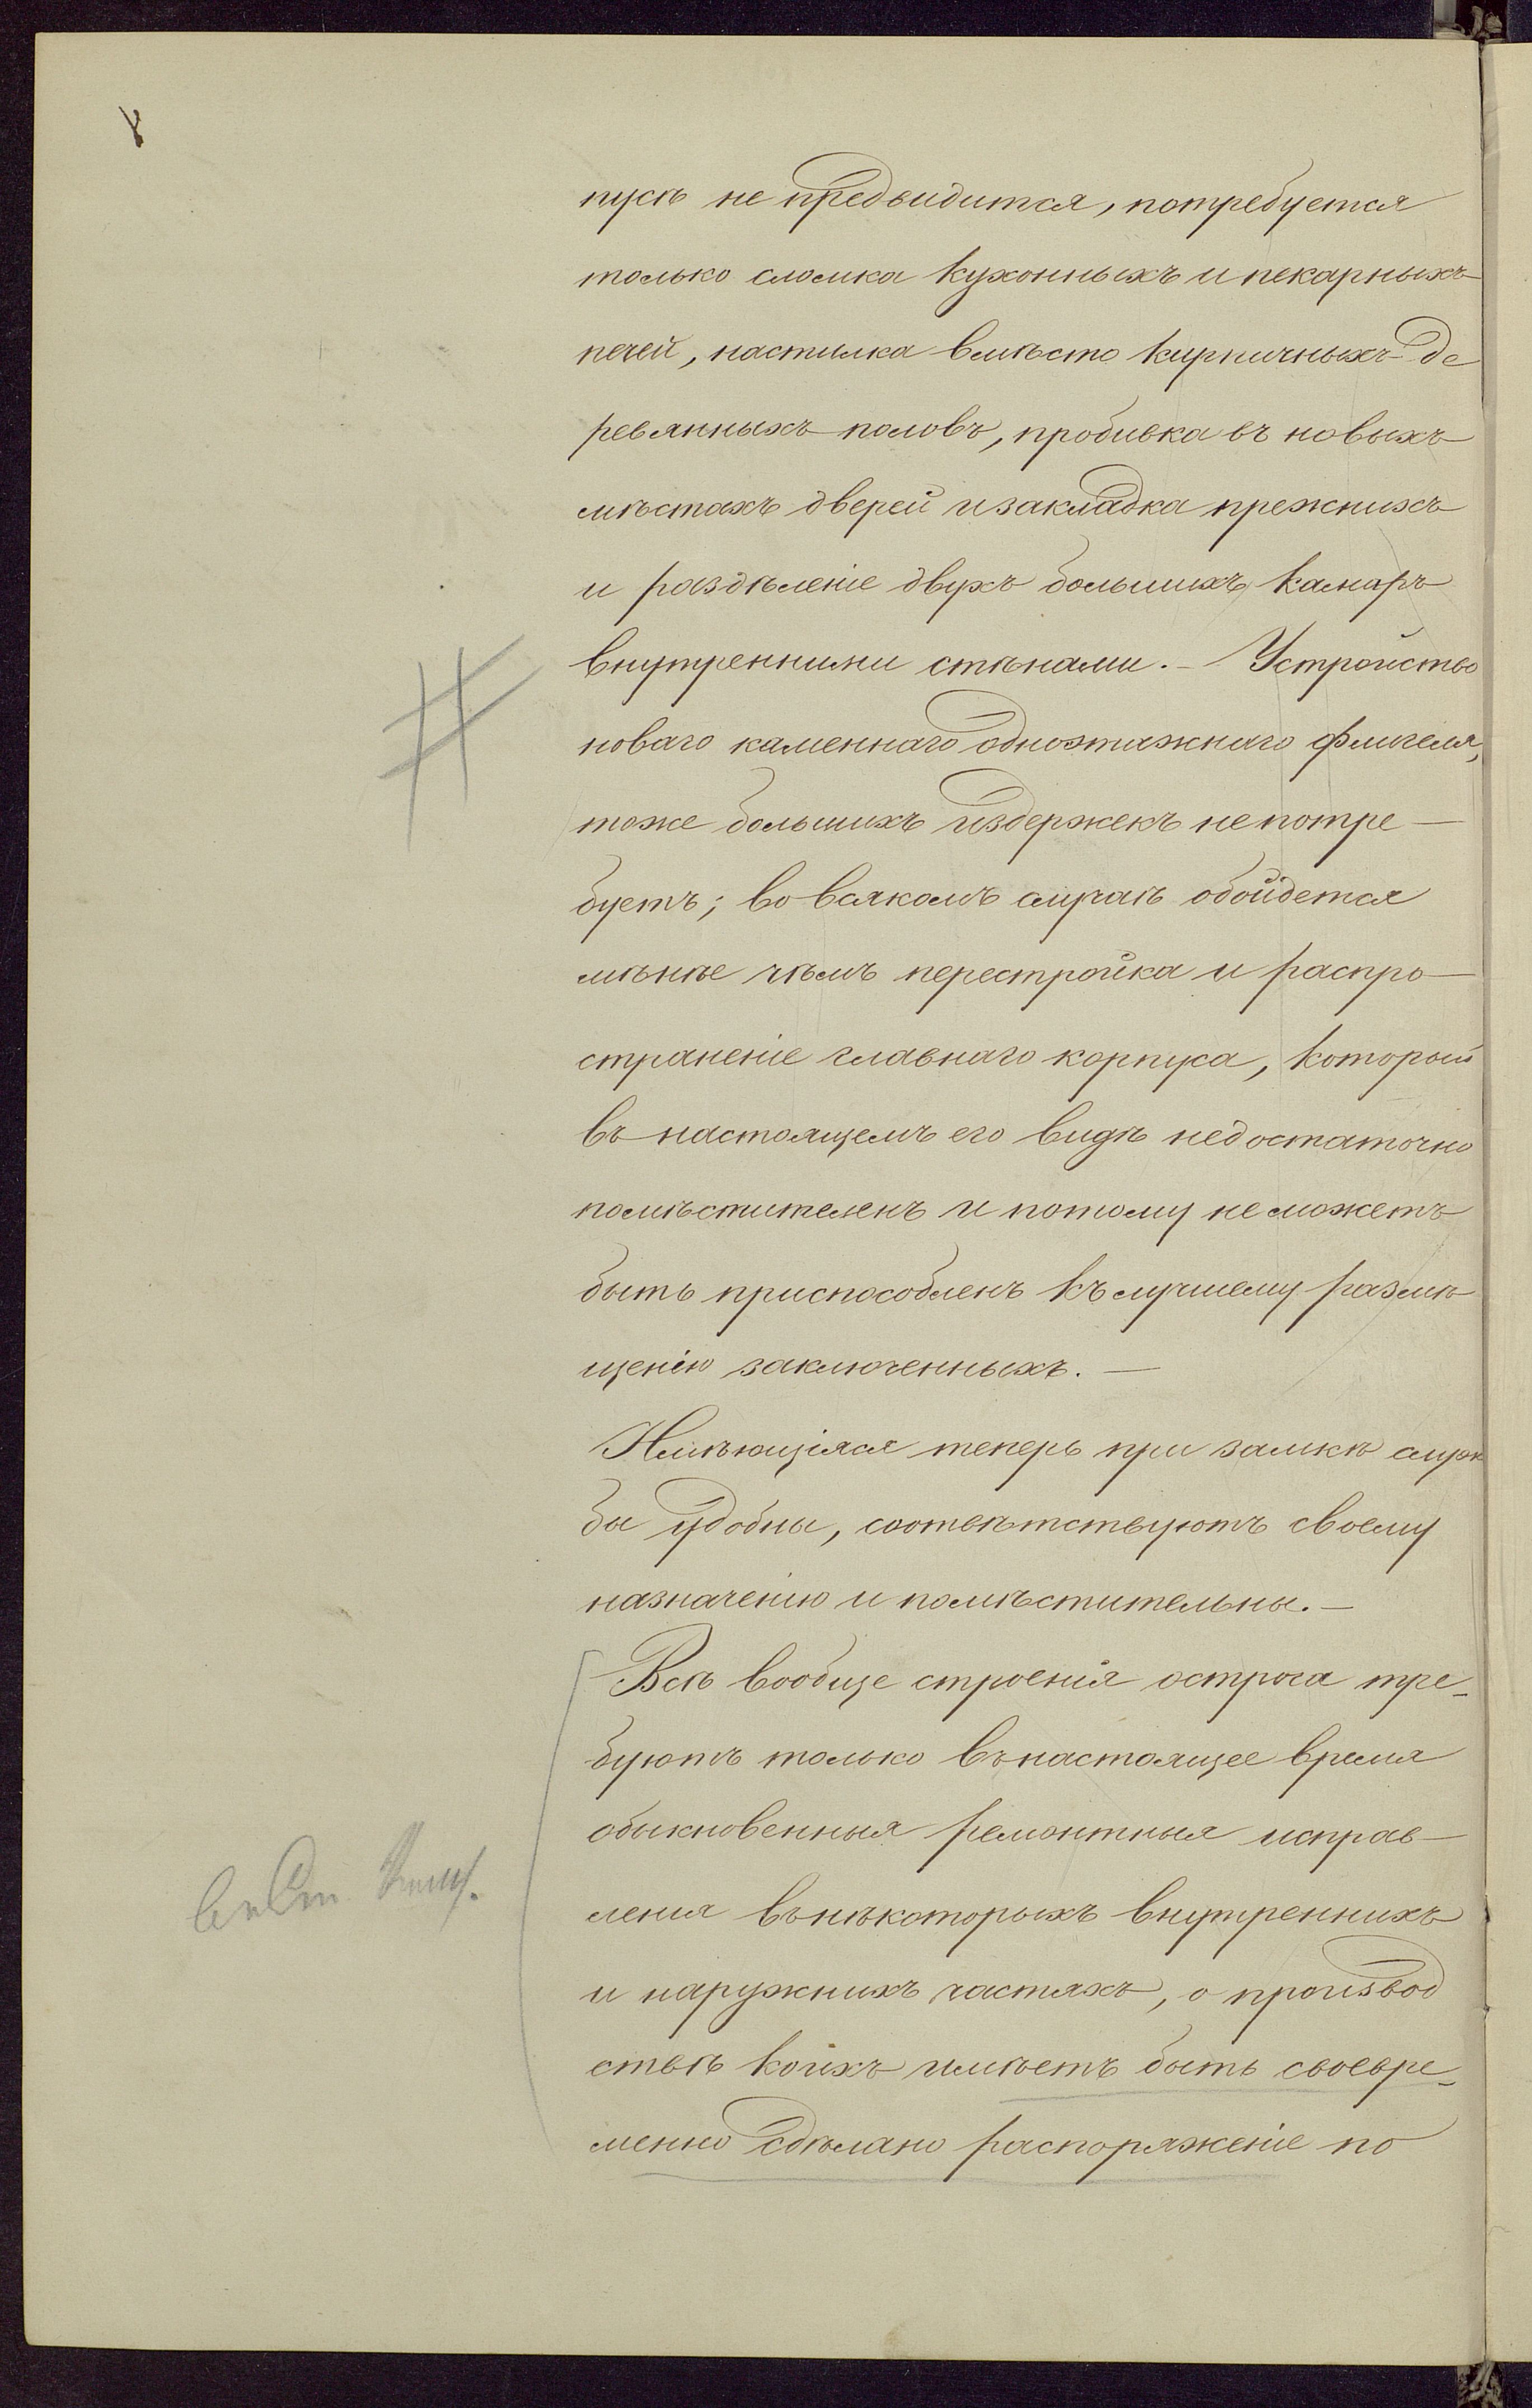 пускъ не предвидится, потребуется
только сломка кухонныхъ и пекарныхъ
печей, настилка вмѣсто кирпичныхъ де
ревянныхъ половъ, пробивка въ новыхъ
мѣстахъ дверей и закладка прежнихъ
и раздѣленіе двухъ большихъ камеръ
внутренними стѣнами. — Устройство
новаго каменнаго одноэтажнаго флигеля,
тоже большихъ издержекъ не потре—
буетъ; во всякомъ случаѣ обойдется
менѣе чѣмъ перестройка и распро—
страненіе главнаго корпуса, который
въ настоящемъ его видѣ недостаточно
помѣстителенъ и потому не можетъ
быть приспособленъ къ лучшему размѣ
щенію заключенныхъ. —
Имѣющіяся теперь при замкѣ служ
бы удобны, соотвѣтствуютъ своему
назначенію и помѣстительны. —
Всѣ вообще строенія острога тре-
буютъ только въ настоящее время
обыкновенныя ремонтныя исправ—
ленія въ нѣкоторыхъ внутреннихъ
и наружнихъ частяхъ, о производ
ствѣ коихъ имѣетъ быть своевре-
менно сдѣлано распоряженіе по